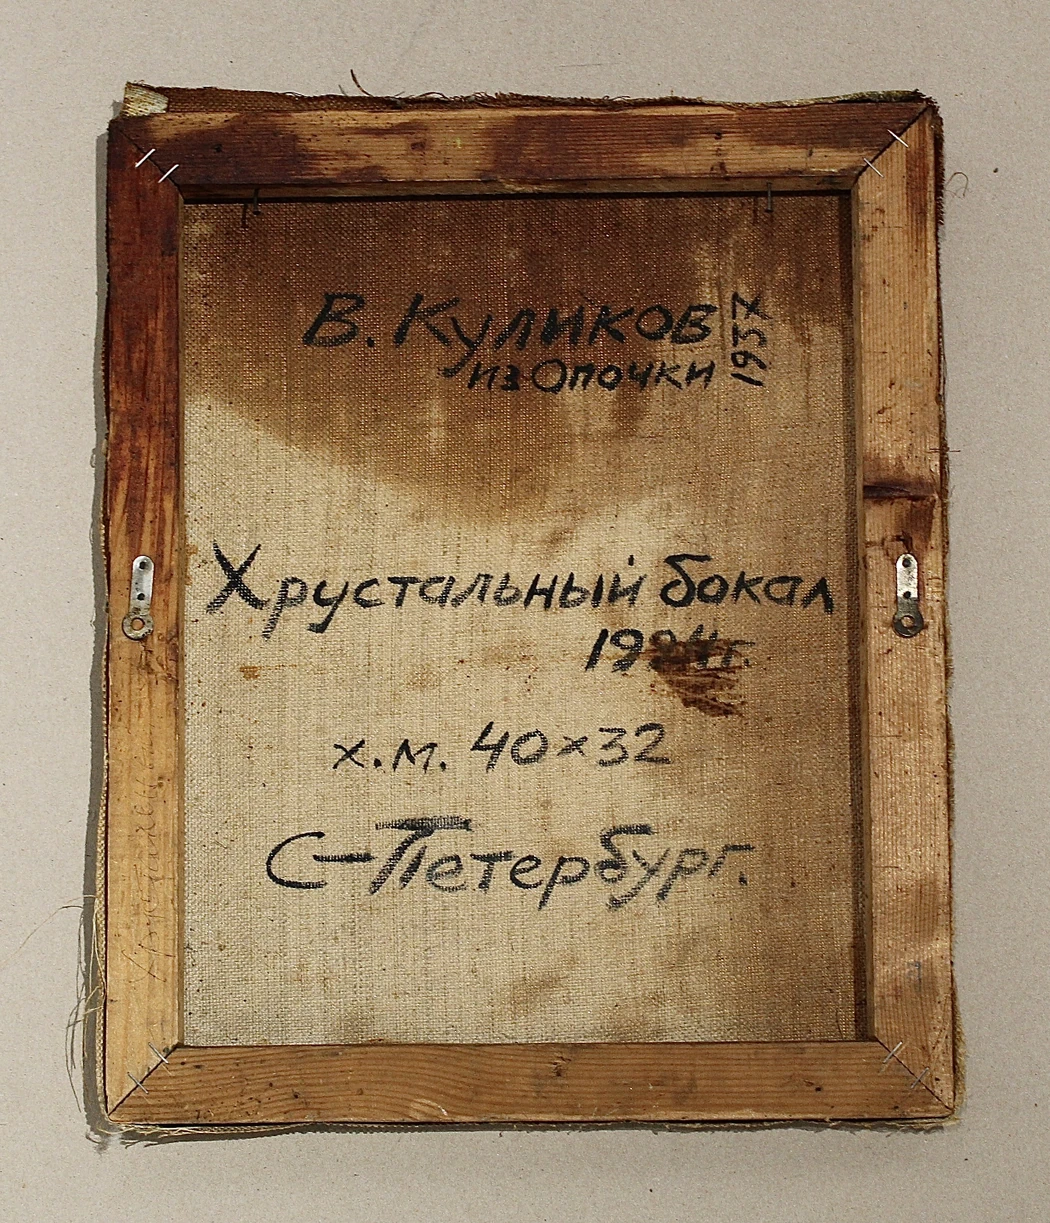 В. Куликов
из Опочки
1937
Хрустальный бокал
х.м. 40х32
С-Петербург.